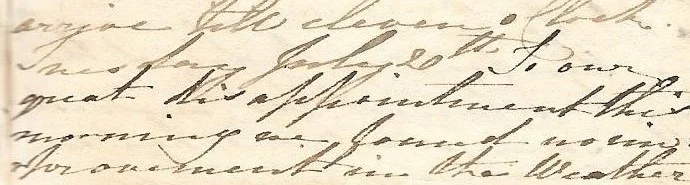 arrive till eleven o Clock.
Tuesday July 2th To our
great disappointment this
morning we found no im
provement in the Weather